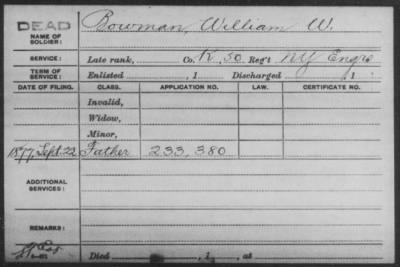 DEAD
NAME OF SOLDIER: Bowman, William W.
SERVICE: Late rank, Co. K, 50 Reg't NY Engrs
TERM OF SERVICE: Enlisted , 1 Discharged , 1
DATE OF FILING. CLASS. APPLICATION NO. LAW. CERTIFICATE NO.
Invalid,
Widow,
Minor,
1877, Sept. 22 Father 233,380
ADDITIONAL SERVICES:
REMARKS:
Died , 1 , at